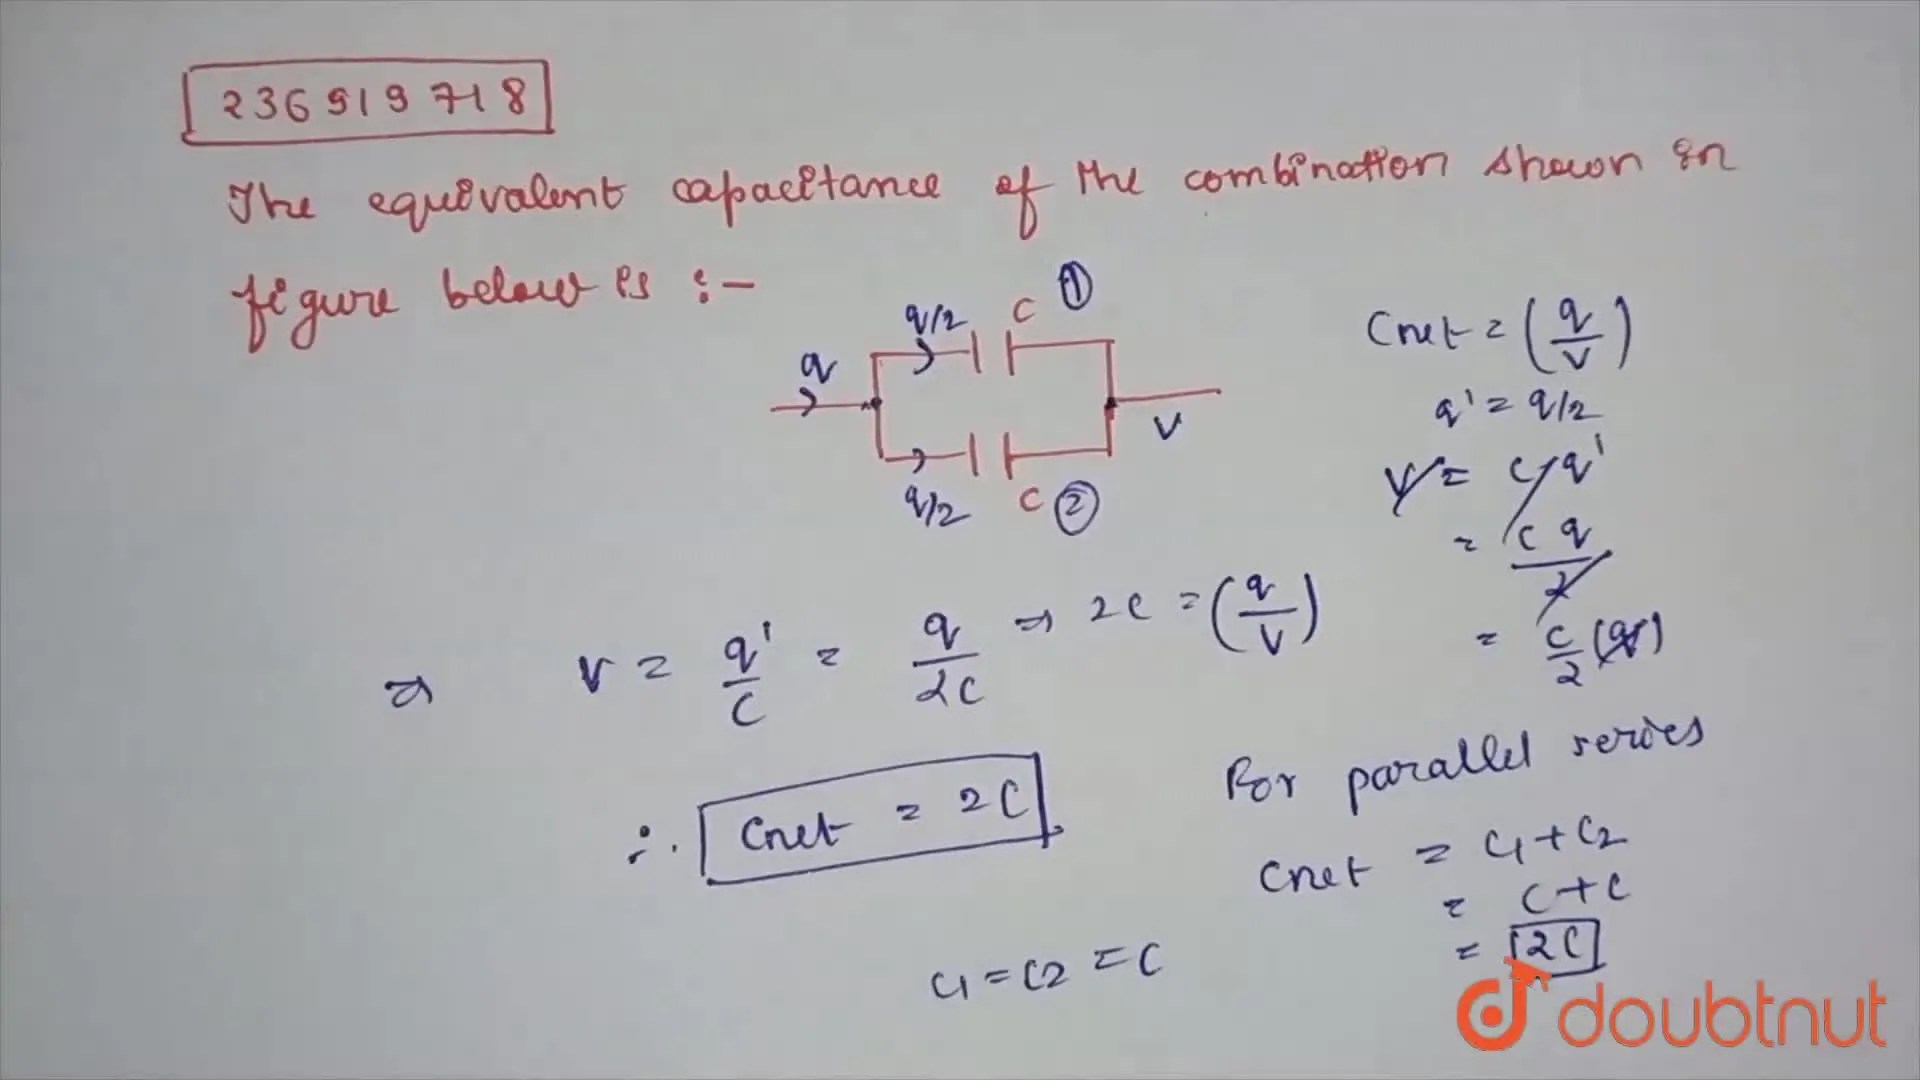 236919718
The equivalent capacitance of the combination shown in
figure below is :-
q
q/2
C
1
V
q/2
C
2
Cnet = (q/V)
q' = q/2
V = C q'
= C q/2
= C/2 (q)
⇒ V = q'/C = q/2C ⇒ 2C = (q/V)
∴ Cnet = 2C
For parallel series
Cnet = C1+C2
= C+C
= 2C
C1 = C2 = C
doubtnut